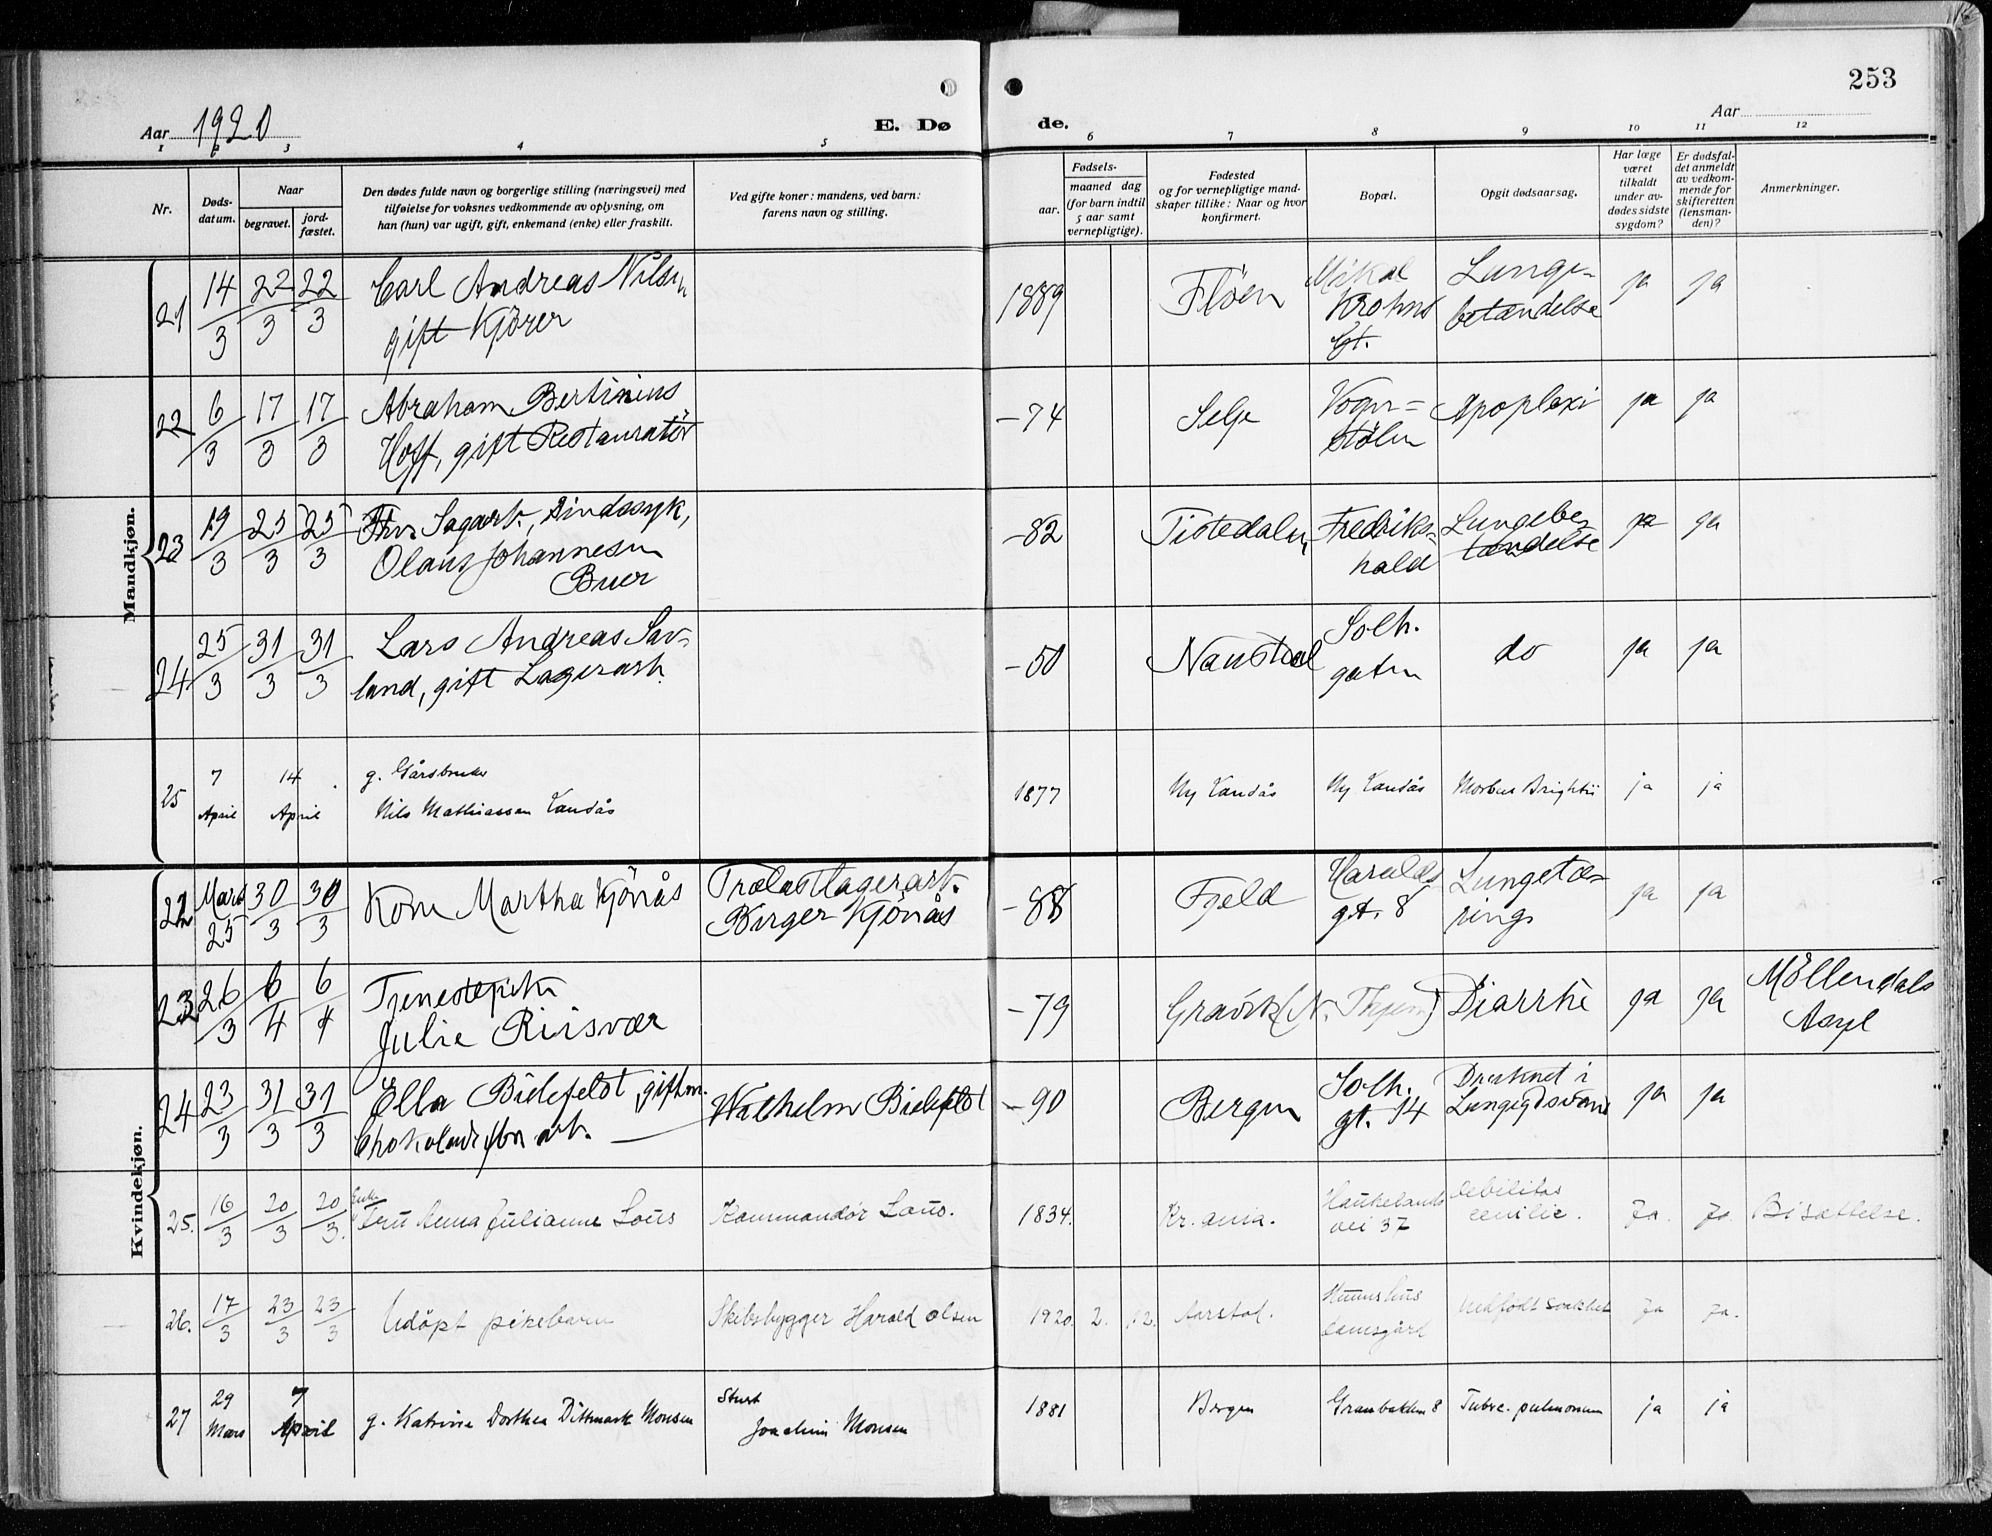 253
Aar 1920
E. Dø
de.
Aar
1 2 3 4 5 6 7 8 9 10 11 12
Nr.
Døds-
datum.
Naar
begravet.
jord-
fæstet.
Den dødes fulde navn og borgerlige stilling (næringsvei) med
tilføielse for voksnes vedkommende av oplysning, om
han (hun) var ugift, gift, enkemand (enke) eller fraskilt.
Ved gifte koner: mandens, ved barn:
farens navn og stilling.
Fødsels-
aar.
maaned dag
(for barn indtil
5 aar samt
vernepligtige).
Fødested
og for vernepligtige mand-
skaper tillike: Naar og hvor
konfirmert.
Bopæl.
Opgit dødsaarsag.
Har læge
været
tilkaldt
under av-
dødes sidste
sygdom?
Er dødsfal-
det anmeldt
av vedkom-
mende for
skifteretten
(lensman-
den)?
Anmerkninger.
Mandkjøn.
21 14/3 22/3 22/3 Carl Andreas Nilsen
gift Kjörer
1889 Flöen Mikal
Krohns
gt.
Lunge-
betændelse
ja ja
22 6/3 17/3 17/3 Abraham Bertinius
Hoff, gift Restauratör
-74 Selje Vogn=
stölen
Apoplexi ja ja
23 19/3 25/3 25/3 Fhv. Sagarb., Sindssyk,
Olaus Johannesen
Buer
-82 Tistedalen Fredriks=
hald
Lungebe-
tændelse
ja ja
24 25/3 31/3 31/3 Lars Andreas Sav-
land, gift Lagerarb.
-50 Naustdal Solh.
gaten
do ja ja
25 7 April 14 April g. Gårsbruker
Nils Mathiassen Landås
1877 Ny Landås Ny Landås Morbus Brightii ja ja
Kvindekjøn.
22 Mars 25 30/3 30/3 Kone Martha Kjönås
Trælastlagerarb.
Birger Kjönås
-88 Fjeld Haralds
gt. 8
Lungetæ-
rings
ja ja
23 26/3 6/4 6/4 Tjenestepike
Julie Riisvær
-79 Gravik (N. Thjem) Diarrhè ja ja Möllendals
Asyl
24 23/3 31/3 31/3 Ella Bielefeldt, gift m.
Chokoladefbr arb.
Wilhelm Bielefeldt
-90 Bergen Solh.
gt. 14
Druknet i
Lungegdsvand
ja ja
25. 16/3 20/3 20/3. Enke
Fru Anna Julianne Lous Kommandør Lous.
1834. Kr.ania. Haukelands
vei 37
Debilitas
cenilis.
Ja. Ja. Bisættelse.
26. 17/3 23/3 23/3 Udöpt pikebarn Skibsbygger Harald Olsen
1920. 2. 12. Aarstad. Medfödt svakhet Ja Ja.
27 29 Mars 7 April g. Katrine Dorthea Dittmark Monsen
Stuert
Joachim Monsen
1881 Bergen Granbakken 8 Tubrc. pulmonum ja ja